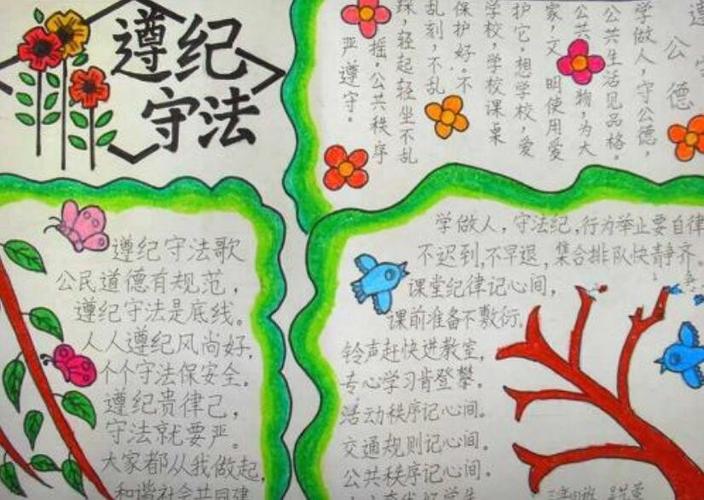 遵纪
守法
遵守
公德
学做人，守公德，
公共生活见品格。
公共物，为大
家，文明使用爱
护它。想学校，爱
学校，学校课桌
保护好。不
乱刻，不乱
踩，轻起轻坐不乱
摇。公共秩序
严遵守。
遵纪守法歌
公民道德有规范，
遵纪守法是底线。
人人遵纪风尚好，
个个守法保安全。
遵纪贵律己，
守法就要严。
大家都从我做起，
和谐社会共同建
学做人，守法纪，行为举止要自律
不迟到，不早退，集合排队快静齐。
课堂纪律记心间，
课前准备不敷衍。
铃声赶快进教室，
专心学习肯登攀。
活动秩序记心间。
交通规则记心间。
公共秩序记心间。